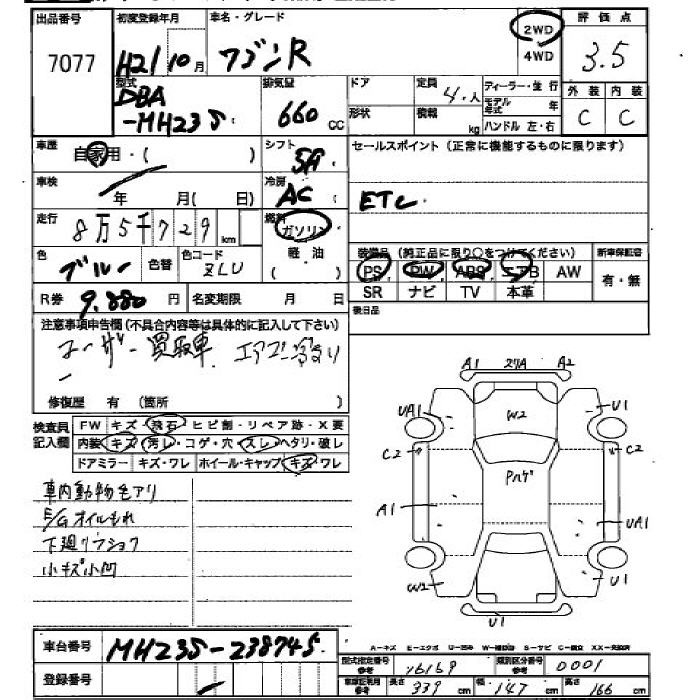 出品番号 初度登録年月 車名・グレード 2WD 4WD 評価点
7077 H21 10月 ワゴンR 3.5
型式 排気量 ドア 定員 4人 ディーラー・並行 外装 内装
DBA 形状 積載 kg モデル年式 C C
-MH23S 660 CC ハンドル 左・右
車歴 自家用・( ) シフト セールスポイント (正常に機能するものに限ります)
車検 年 月( 日) 冷房 AC ETC
走行 8万5千729km 燃料 ガソリン
色 ブルー 色替 色コード ZLU 軽油 ( ) 装備品 (純正品に限り○をつけてください) 新車保証書
PS PW ABS エアB AW 有・無
R券 9,880円 名変期限 月 日 SR ナビ TV 本革
注意事項申告欄(不具合内容等は具体的に記入して下さい) 後日品
ユーザー買取車
修復歴 有 (箇所 )
検査員記入欄 FW キズ・飛石・ヒビ割・リペア跡・X要
内装・キズ・汚レ・コゲ・穴・スレ・ヘタリ・破レ
ドアミラー キズ・ワレ ホイール・キャップ キズ・ワレ
車内動物色アリ
E/Gオイルもれ
小キズ小凹
A1 27A A2
UA1 W2 U1
C2 C2
A1 UA1
W2 U1
U1
車台番号 MH23S-238745
A-キズ E-エクボ
登録番号
型式指定番号 16169 類別区分番号 0001
長さ 339 cm 幅 147 cm 高さ 166 cm